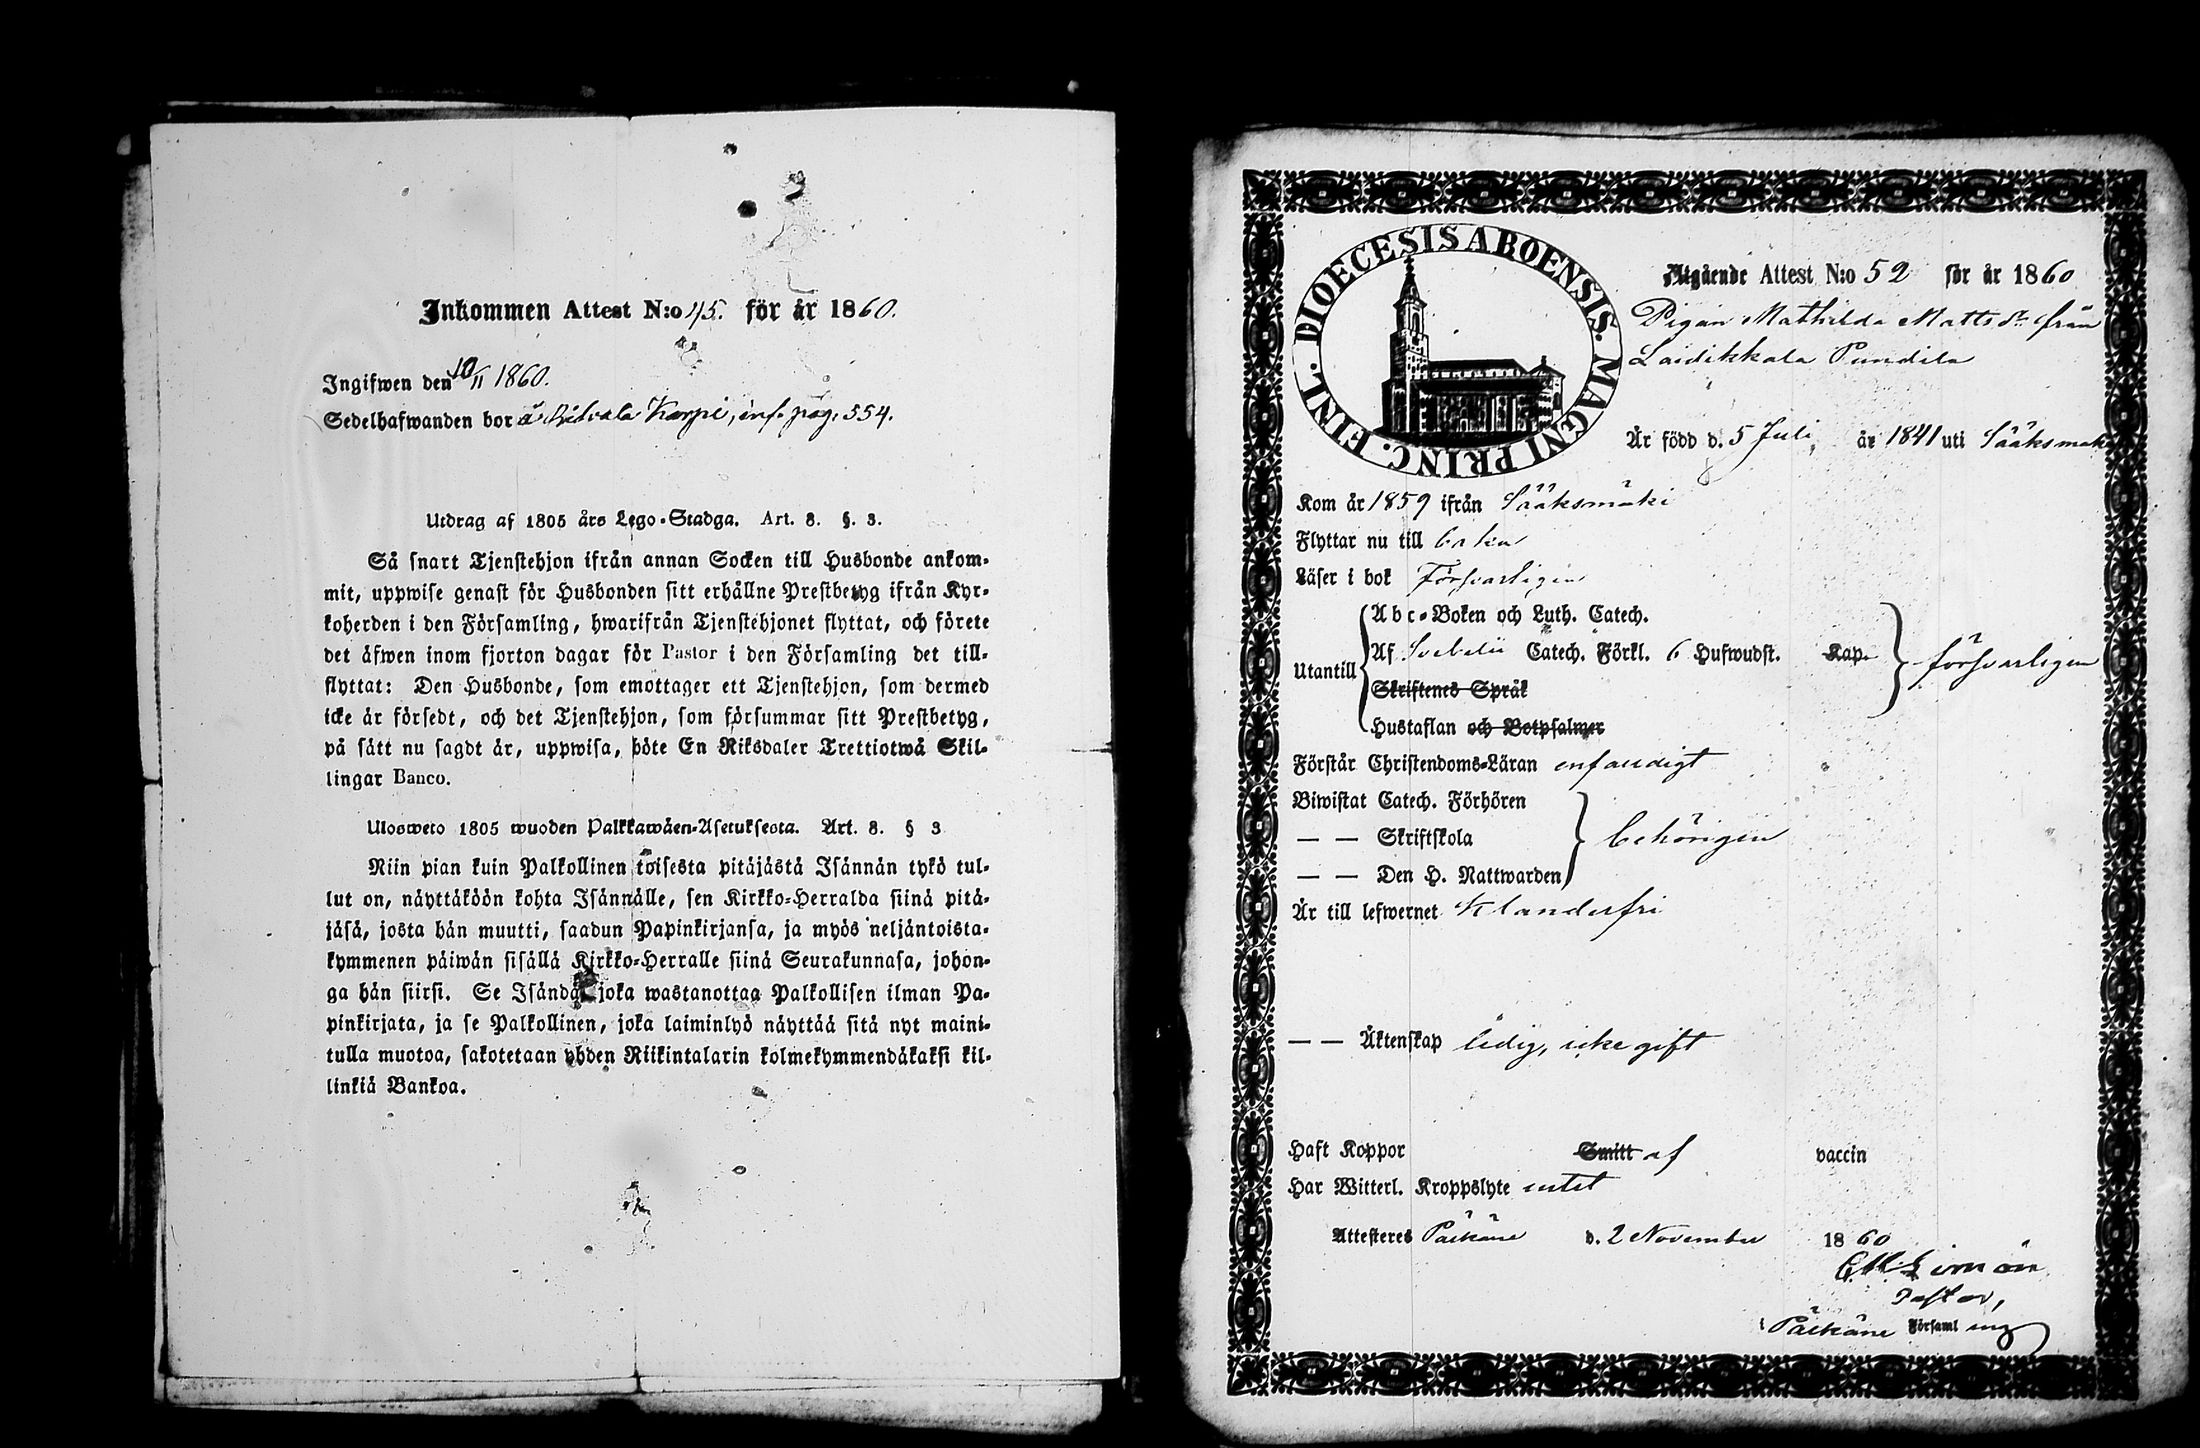 Inkommen Attest N:o 45. för år 1860.
Ingifwen den 10/11 1860.
Sedelhafwanden bor å Ritvala Karpi, inf. pag. 554.
Utdrag af 1805 års Lego-Stadga. Art. 8. §. 3.
Så snart Tjenstehjon ifrån annan Socken till Husbonde ankom-
mit, uppwise genast för Husbonden sitt erhållne Prestbetyg ifrån Kyr-
koherden i den Församling, hwarifrån Tjenstehjonet flyttat, och förete
det äfwen inom fjorton dagar för Pastor i den Församling det till-
flyttat: Den Husbonde, som emottager ett Tjenstehjon, som dermed
icke är försedt, och det Tjenstehjon, som försummar sitt Prestbetyg,
på sätt nu sagdt är, uppwisa, böte En Riksdaler Trettiotwå Skil-
lingar Banco.
Ulosweto 1805 wuoden Palkkawäen-Asetuksesta. Art. 8. § 3
Niin pian kuin Palkollinen toisesta pitäjästä Isännän tykö tul-
lut on, näyttäköön kohta Isännälle, sen Kirkko-Herralda siinä pitä-
jäsä, josta hän muutti, saadun Papinkirjansa, ja myös neljäntoista-
kymmenen päiwän sisällä Kirkko-Herralle siinä Seurakunnasa, johon-
ga hän siirsi. Se Isändä, joka wastanottaa Palkollisen ilman Pa-
pinkirjata, ja se Palkollinen, joka laiminlyö näyttää sitä nyt maini-
tulla muotoa, sakotetaan yhden Riikintalarin kolmekymmendäkaksi kil-
linkiä Bankoa.
DIOECESIS ABOENSIS. MAGNI PRINC. FINL.
Utgående Attest N:o 52 för år 1860
Pigan Mathilda Mattsdr från
Laidikkala Pundila
Är född d. 5 Juli år 1841 uti Sääksmäki
Kom år 1859 ifrån Sääksmäki
Flyttar nu till
Läser i bok Försvarligen
Utantill
Abc-Boken och Luth. Catech.
Af Svebelii Catech. Förkl. 6 Hufwudst. Kap.
Skriftenes Språk
Hustaflan och Botpsalmer
försvarligen
Förstår Christendoms-Läran enfaldigt
Biwistat Catech. Förhören
— — Skriftskola
— — Den H. Nattwarden
behörigen
Är till lefwernet Klanderfri
— — Äktenskap ledig, icke gift
Haft Koppor Smitt af vaccin
Har Witterl. Kroppslyte intet
Attesteres Pälkäne d. 2 November 1860
Pastor,
i Pälkäne Församling